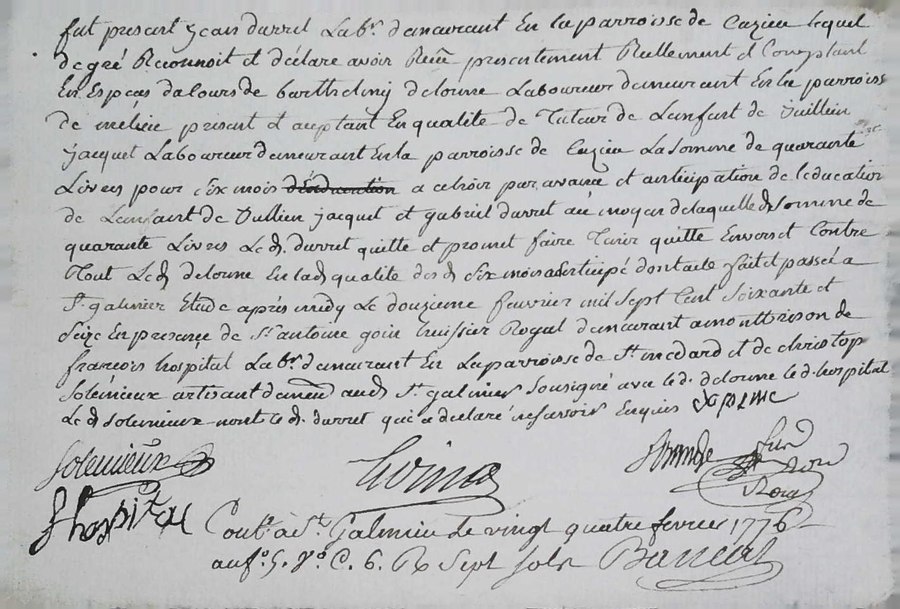 fut present jean durret Labr. demeurant En la parroisse de Cuzieu lequel
de gré Reconnoit et déclare avoir Reçu presentement Reellement et Comptant
En Espèces dalours de barthelmy delorme Laboureur demeurant En la parroisse
De présent et aceptant En qualité de Tuteur de Lenfant de Jullien
jacquet Laboureur demeurant En la parroisse de Cuzieu La somme de quarante
Livres pour six mois a echoir par avance et anticipation de l'education
de Lenfant de Jullien jacquet et gabriel durret au moyen de laquelle de somme de
quarante Livres Le d. durret quitte et promet faire Tenir quitte Envers et Contre
Tout Le d. delorme En lad. qualité des d. six mois anticipé dont acte fait et passé a
St. galmier Etude après midy Le douzieme feuvrier mil sept Cent Soixante et
Seize En presence de Sr. antoine goin huissier Royal demeurant a montbrison de
françois hospital Labr. demeurant En La parroisse de St. medard et de christop
Solémieux artisant demeurt. aud. St. galmier Sousigné avec le d. delorme le d. hospital
Le d. Solemieux non le d. durret qui a declaré ne savoir Enquis
Solemieux
f hospital
Contlé. à St. Galmier le vingt quatre fevrier 1776
au fo. 5. Vo. C. 6. R Sept sols